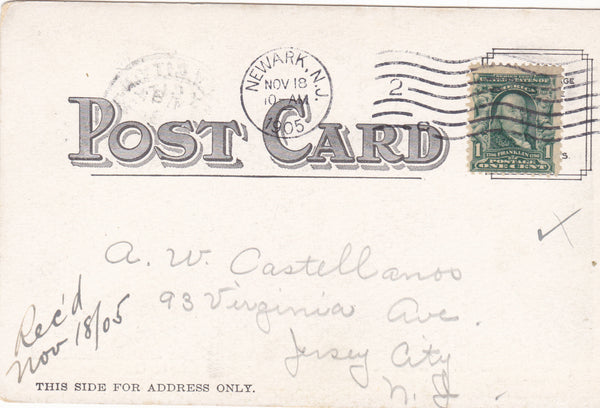 NEWARK, N.J.
NOV 18
10-AM
1905
2
POST CARD
UNITED STATES OF
AMERICA
FRANKLIN
POSTAGE
1 ONE CENT 1
A. W. Castellanos
93 Virginia Ave.
Jersey City
N. J.
Rec'd
Nov 18/05
THIS SIDE FOR ADDRESS ONLY.